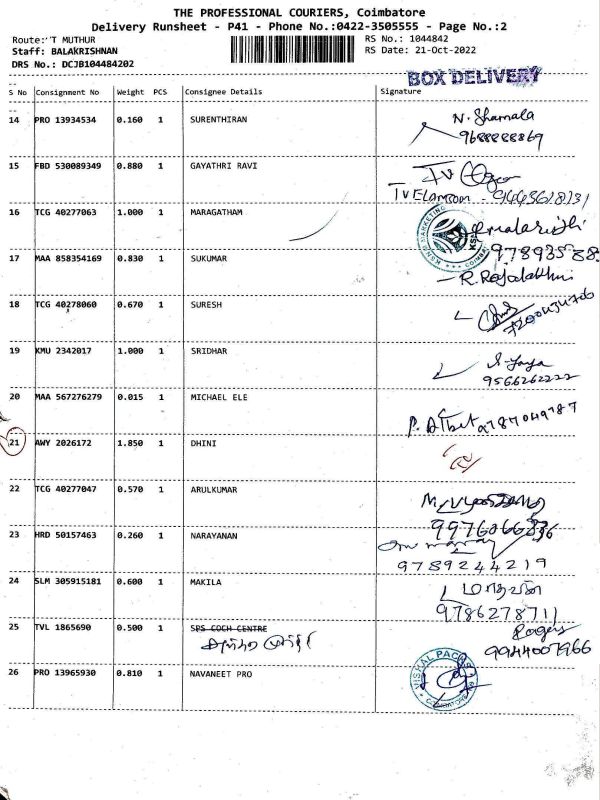 THE PROFESSIONAL COURIERS, Coimbatore
Delivery Runsheet - P41 - Phone No.:0422-3505555 - Page No.:2
Route:'T MUTHUR RS No.: 1044842
Staff: BALAKRISHNAN RS Date: 21-Oct-2022
DRS No.: DCJB104484202
BOX DELIVERY
S No Consignment No Weight PCS Consignee Details Signature
14 PRO 13934534 0.160 1 SURENTHIRAN N. Shamala
9688888869
15 FBD 530089349 0.880 1 GAYATHRI RAVI
16 TCG 40277063 1.000 1 MARAGATHAM
17 MAA 858354169 0.830 1 SUKUMAR
R. Rajalakhmi
18 TCG 40278060 0.670 1 SURESH
19 KMU 2342017 1.000 1 SRIDHAR
9566262222
20 MAA 567276279 0.015 1 MICHAEL ELE
9787049787
21 AWY 2026172 1.850 1 DHINI
22 TCG 40277047 0.570 1 ARULKUMAR
23 HRD 50157463 0.260 1 NARAYANAN
9789244219
24 SLM 305915181 0.600 1 MAKILA
9786278711
25 TVL 1865690 0.500 1 SPS COCH CENTRE
9944007966
26 PRO 13965930 0.810 1 NAVANEET PRO